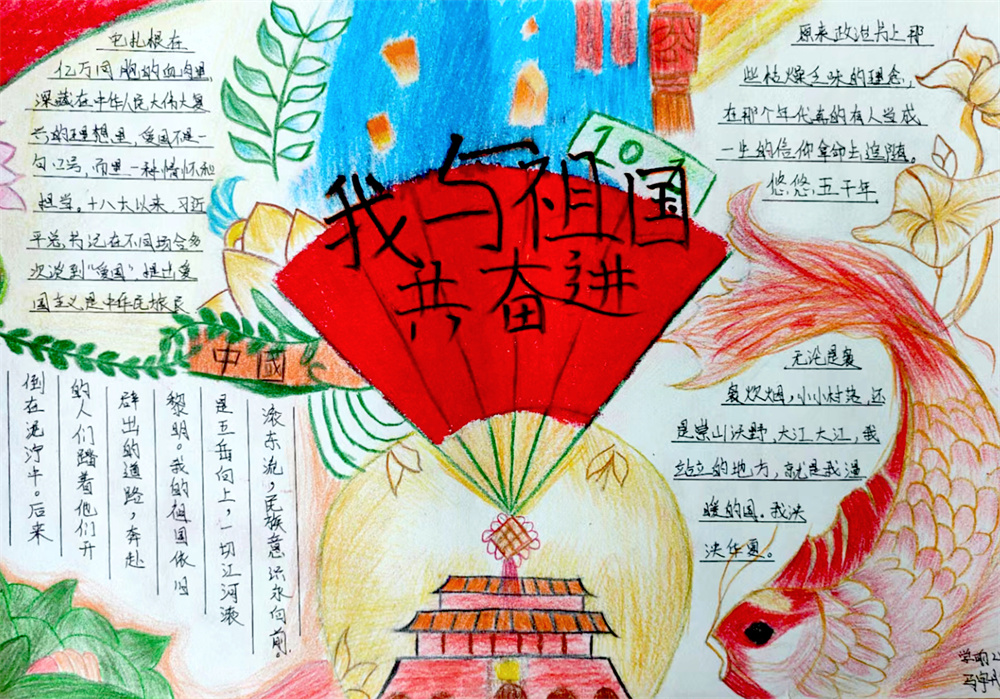 我与祖国
共奋进
10
中國
它扎根在
亿万同胞的血肉里,
深藏在中华人民大伟大复
兴的理想里,爱国不是一
句口号,而是一种情怀和
担当。十八大以来,习近
平总书记在不同场合多
次谈到“爱国”,提出爱
国主义是中华民族民
倒在泥泞中。后来
的人们踏着他们开
辟出的道路,奔赴
黎明。我的祖国依旧
是五岳向上,一切江河滚
滚东流,民族意识永向前。
原来政治书上那
些枯燥乏味的理念,
在那个年代真的有人当成
一生的信仰拿命去追随。
悠悠五千年
无论是袅
袅炊烟,小小村落,还
是崇山沃野,大江大江,我
站立的地方,就是我温
暖的国。我泱
泱华夏。